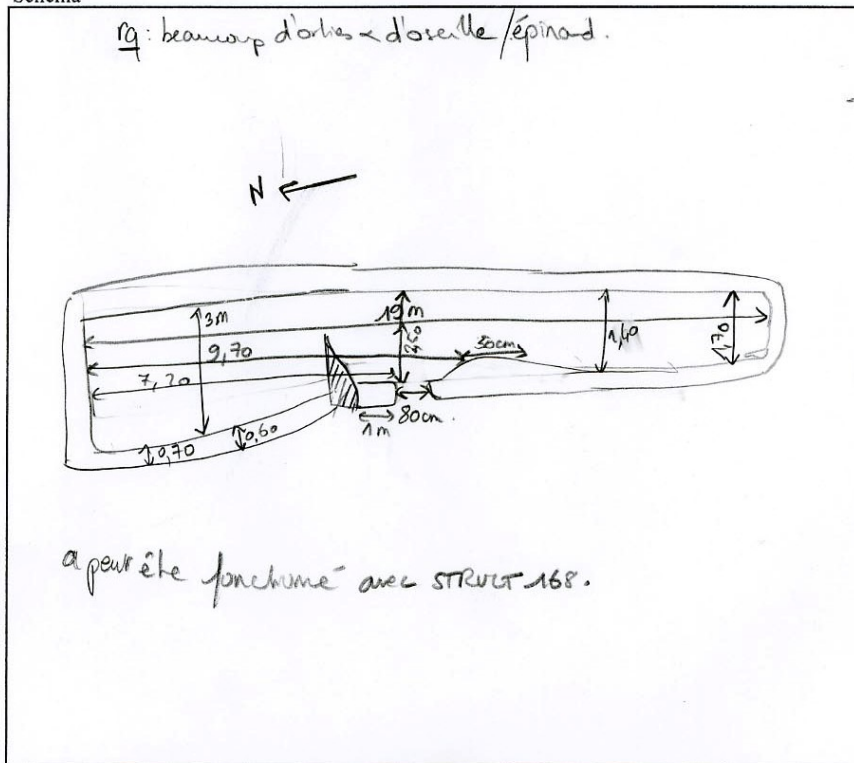 Schéma
rq: beaucoup d'orties & d'oseille/épinard.
N
3m
19m
9,70
2,50
50cm
1,40
1,70
7,20
80cm.
1m
0,60
0,70
a peut être fonctionné avec STRUCT 168.